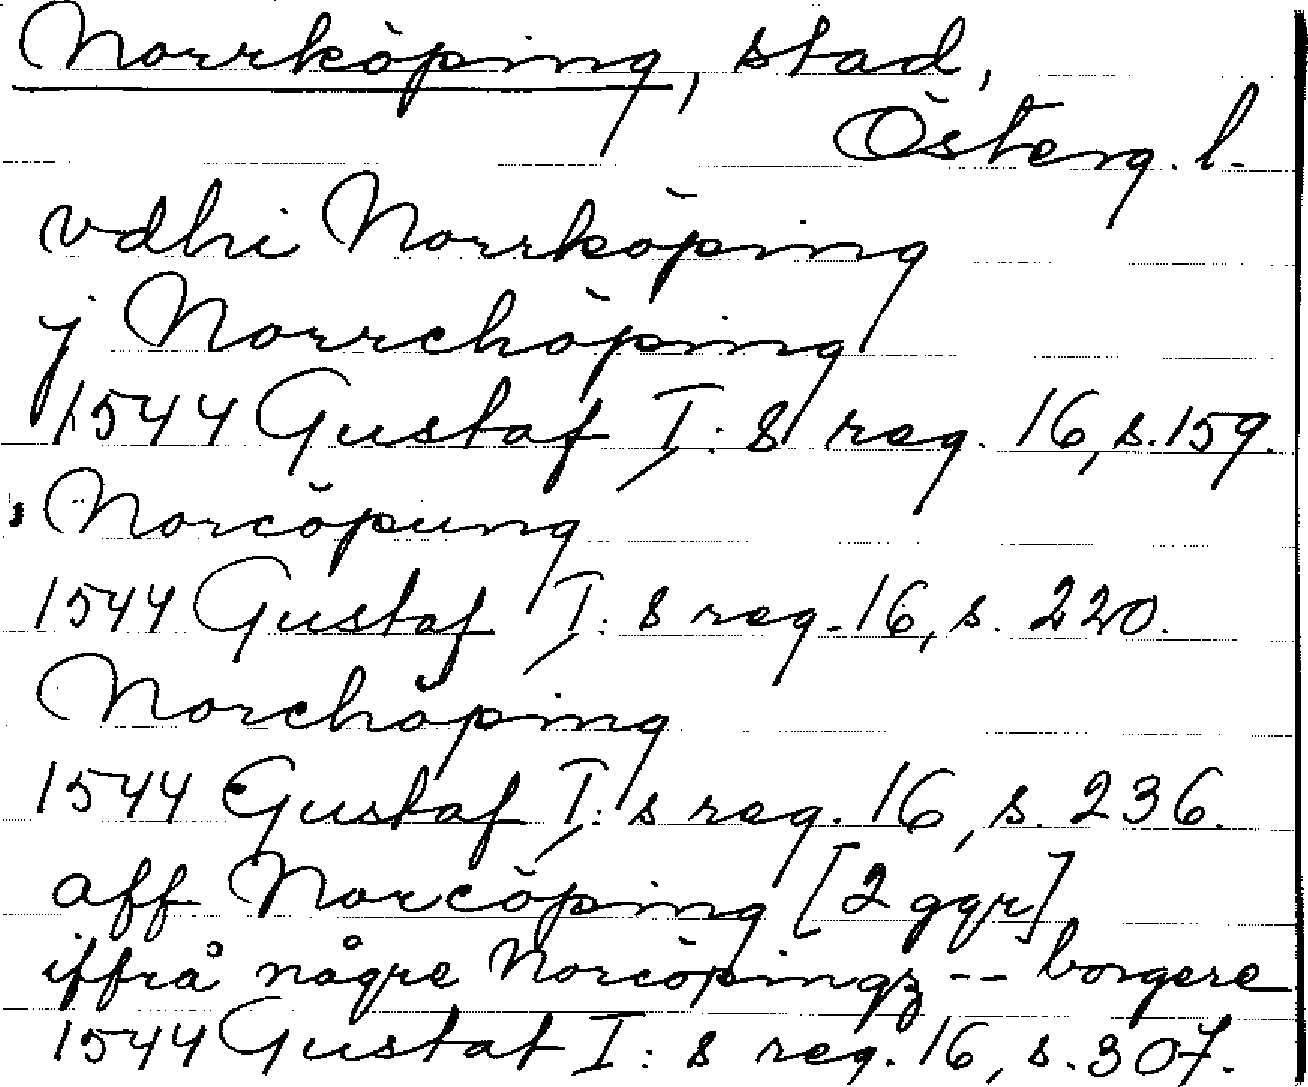 Norrköping, stad,
Österg. l.
vdhi Norrköping
j Norrchöping
1544 Gustaf I: s reg. 16, s. 159.
Norcöpung
1544 Gustaf I: s reg. 16, s. 220.
Norchöping
1544 Gustaf I: s reg. 16, s. 236.
aff Norcöping [2 ggr]
iffrå någre Norcöpingz -- borgere
1544 Gustaf I: s reg. 16, s. 307.